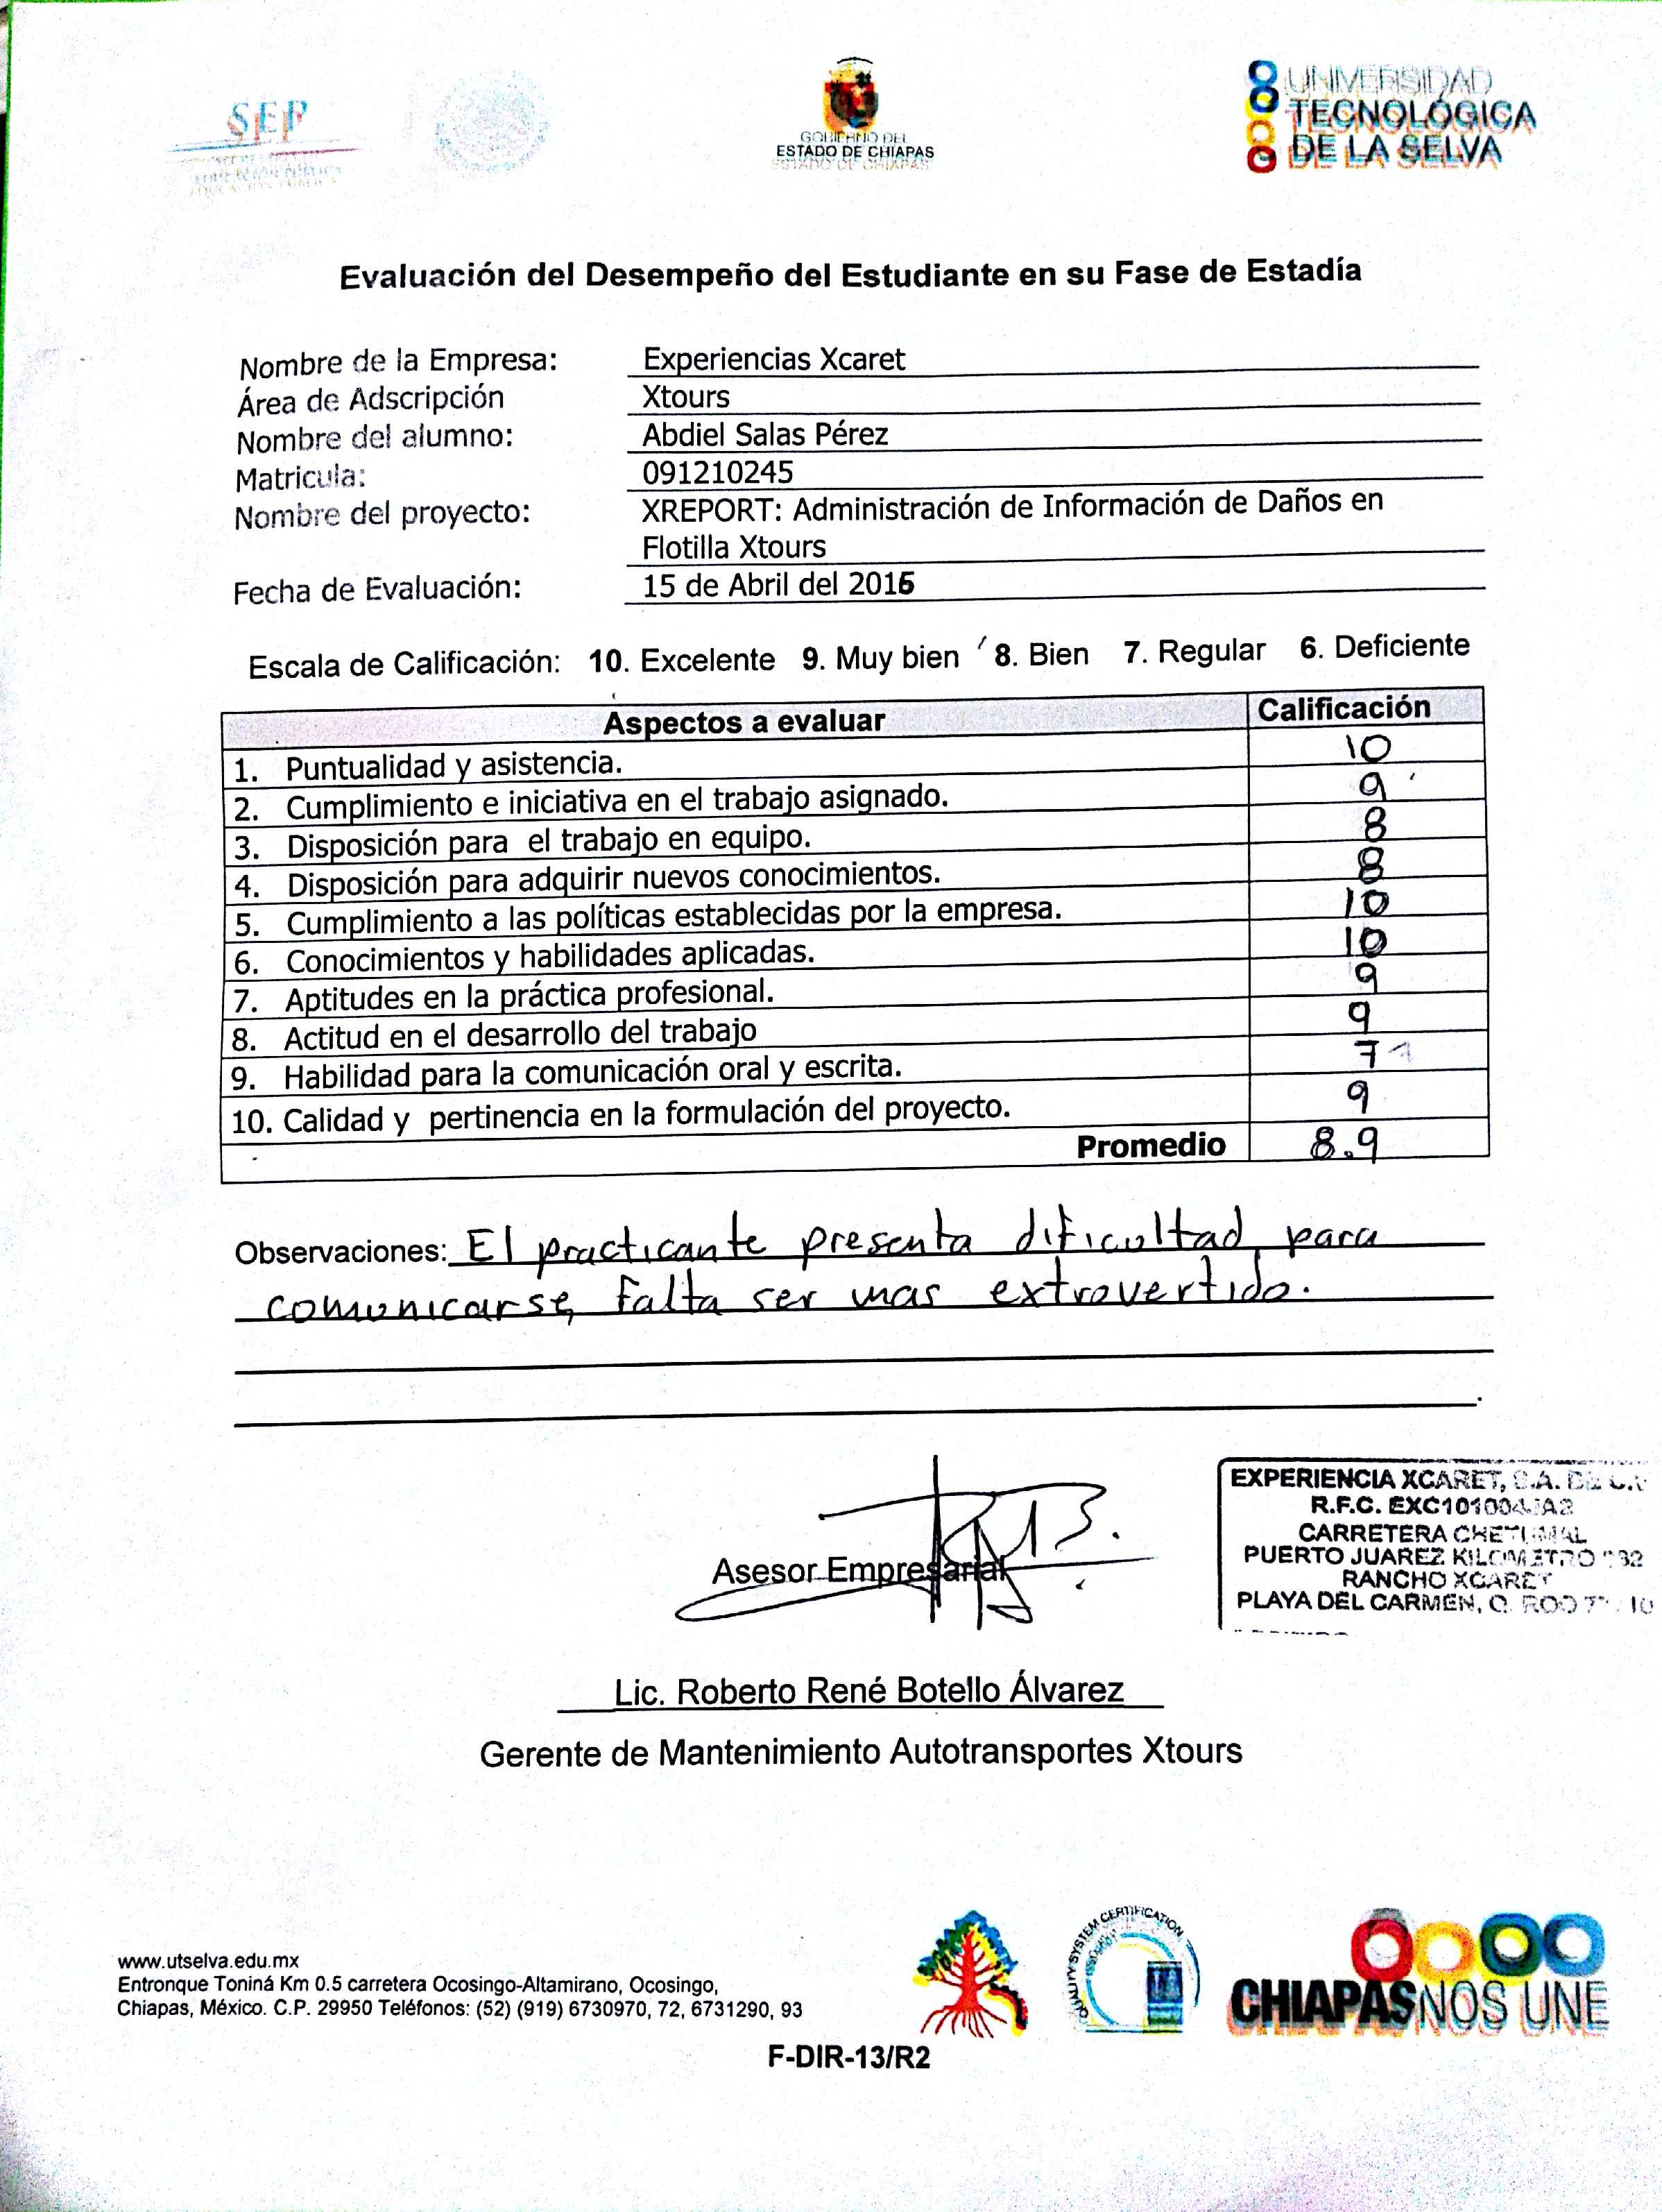 SEP
GOBIERNO DEL
ESTADO DE CHIAPAS
UNIVERSIDAD
TECNOLÓGICA
DE LA SELVA
Evaluación del Desempeño del Estudiante en su Fase de Estadía
Nombre de la Empresa: Experiencias Xcaret
Área de Adscripción Xtours
Nombre del alumno: Abdiel Salas Pérez
Matricula: 091210245
Nombre del proyecto: XREPORT: Administración de Información de Daños en
Flotilla Xtours
Fecha de Evaluación: 15 de Abril del 2016
Escala de Calificación: 10. Excelente 9. Muy bien 8. Bien 7. Regular 6. Deficiente
Aspectos a evaluar Calificación
1. Puntualidad y asistencia. 10
2. Cumplimiento e iniciativa en el trabajo asignado. 9
3. Disposición para el trabajo en equipo. 8
4. Disposición para adquirir nuevos conocimientos. 8
5. Cumplimiento a las políticas establecidas por la empresa. 10
6. Conocimientos y habilidades aplicadas. 10
7. Aptitudes en la práctica profesional. 9
8. Actitud en el desarrollo del trabajo 9
9. Habilidad para la comunicación oral y escrita. 7
10. Calidad y pertinencia en la formulación del proyecto. 9
Promedio 8.9
Observaciones: El practicante presenta dificultad para
comunicarse, falta ser mas extrovertido.
Asesor Empresarial
EXPERIENCIA XCARET, S.A. DE C.V
R.F.C.
CARRETERA CHETUMAL
PUERTO JUAREZ KILOMETRO
RANCHO XCARET
PLAYA DEL CARMEN, Q. ROO
Lic. Roberto René Botello Álvarez
Gerente de Mantenimiento Autotransportes Xtours
www.utselva.edu.mx
Entronque Toniná Km 0.5 carretera Ocosingo-Altamirano, Ocosingo,
Chiapas, México. C.P. 29950 Teléfonos: (52) (919) 6730970, 72, 6731290, 93
QUALITY SYSTEM CERTIFICATION
CHIAPAS NOS UNE
F-DIR-13/R2